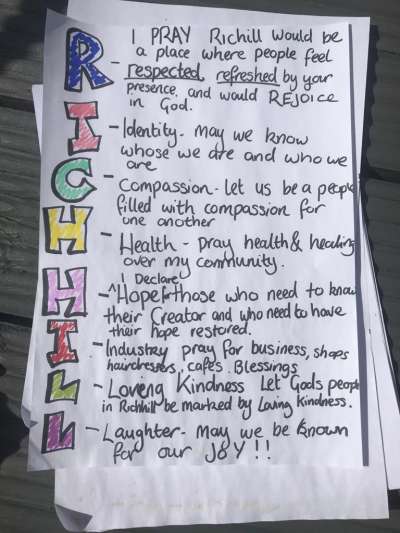 R
I
C
H
H
I
L
L
I PRAY Richill would be
a place where people feel
- respected, refreshed by your
presence, and would REJOICE
in God.
- Identity - May we know
whose we are and who we
are
- Compassion - let us be a people
filled with compassion for
one another
- Health - pray health & healing
over my community.
I Declare
- ^Hope for those who need to know
their Creator and who need to have
their hope restored.
- Industry pray for business, shops
hairdressers, cafes. Blessings
- Loving Kindness Let Gods people
in Richhill be marked by Loving Kindness.
- Laughter - May we be known
for our JOY!!